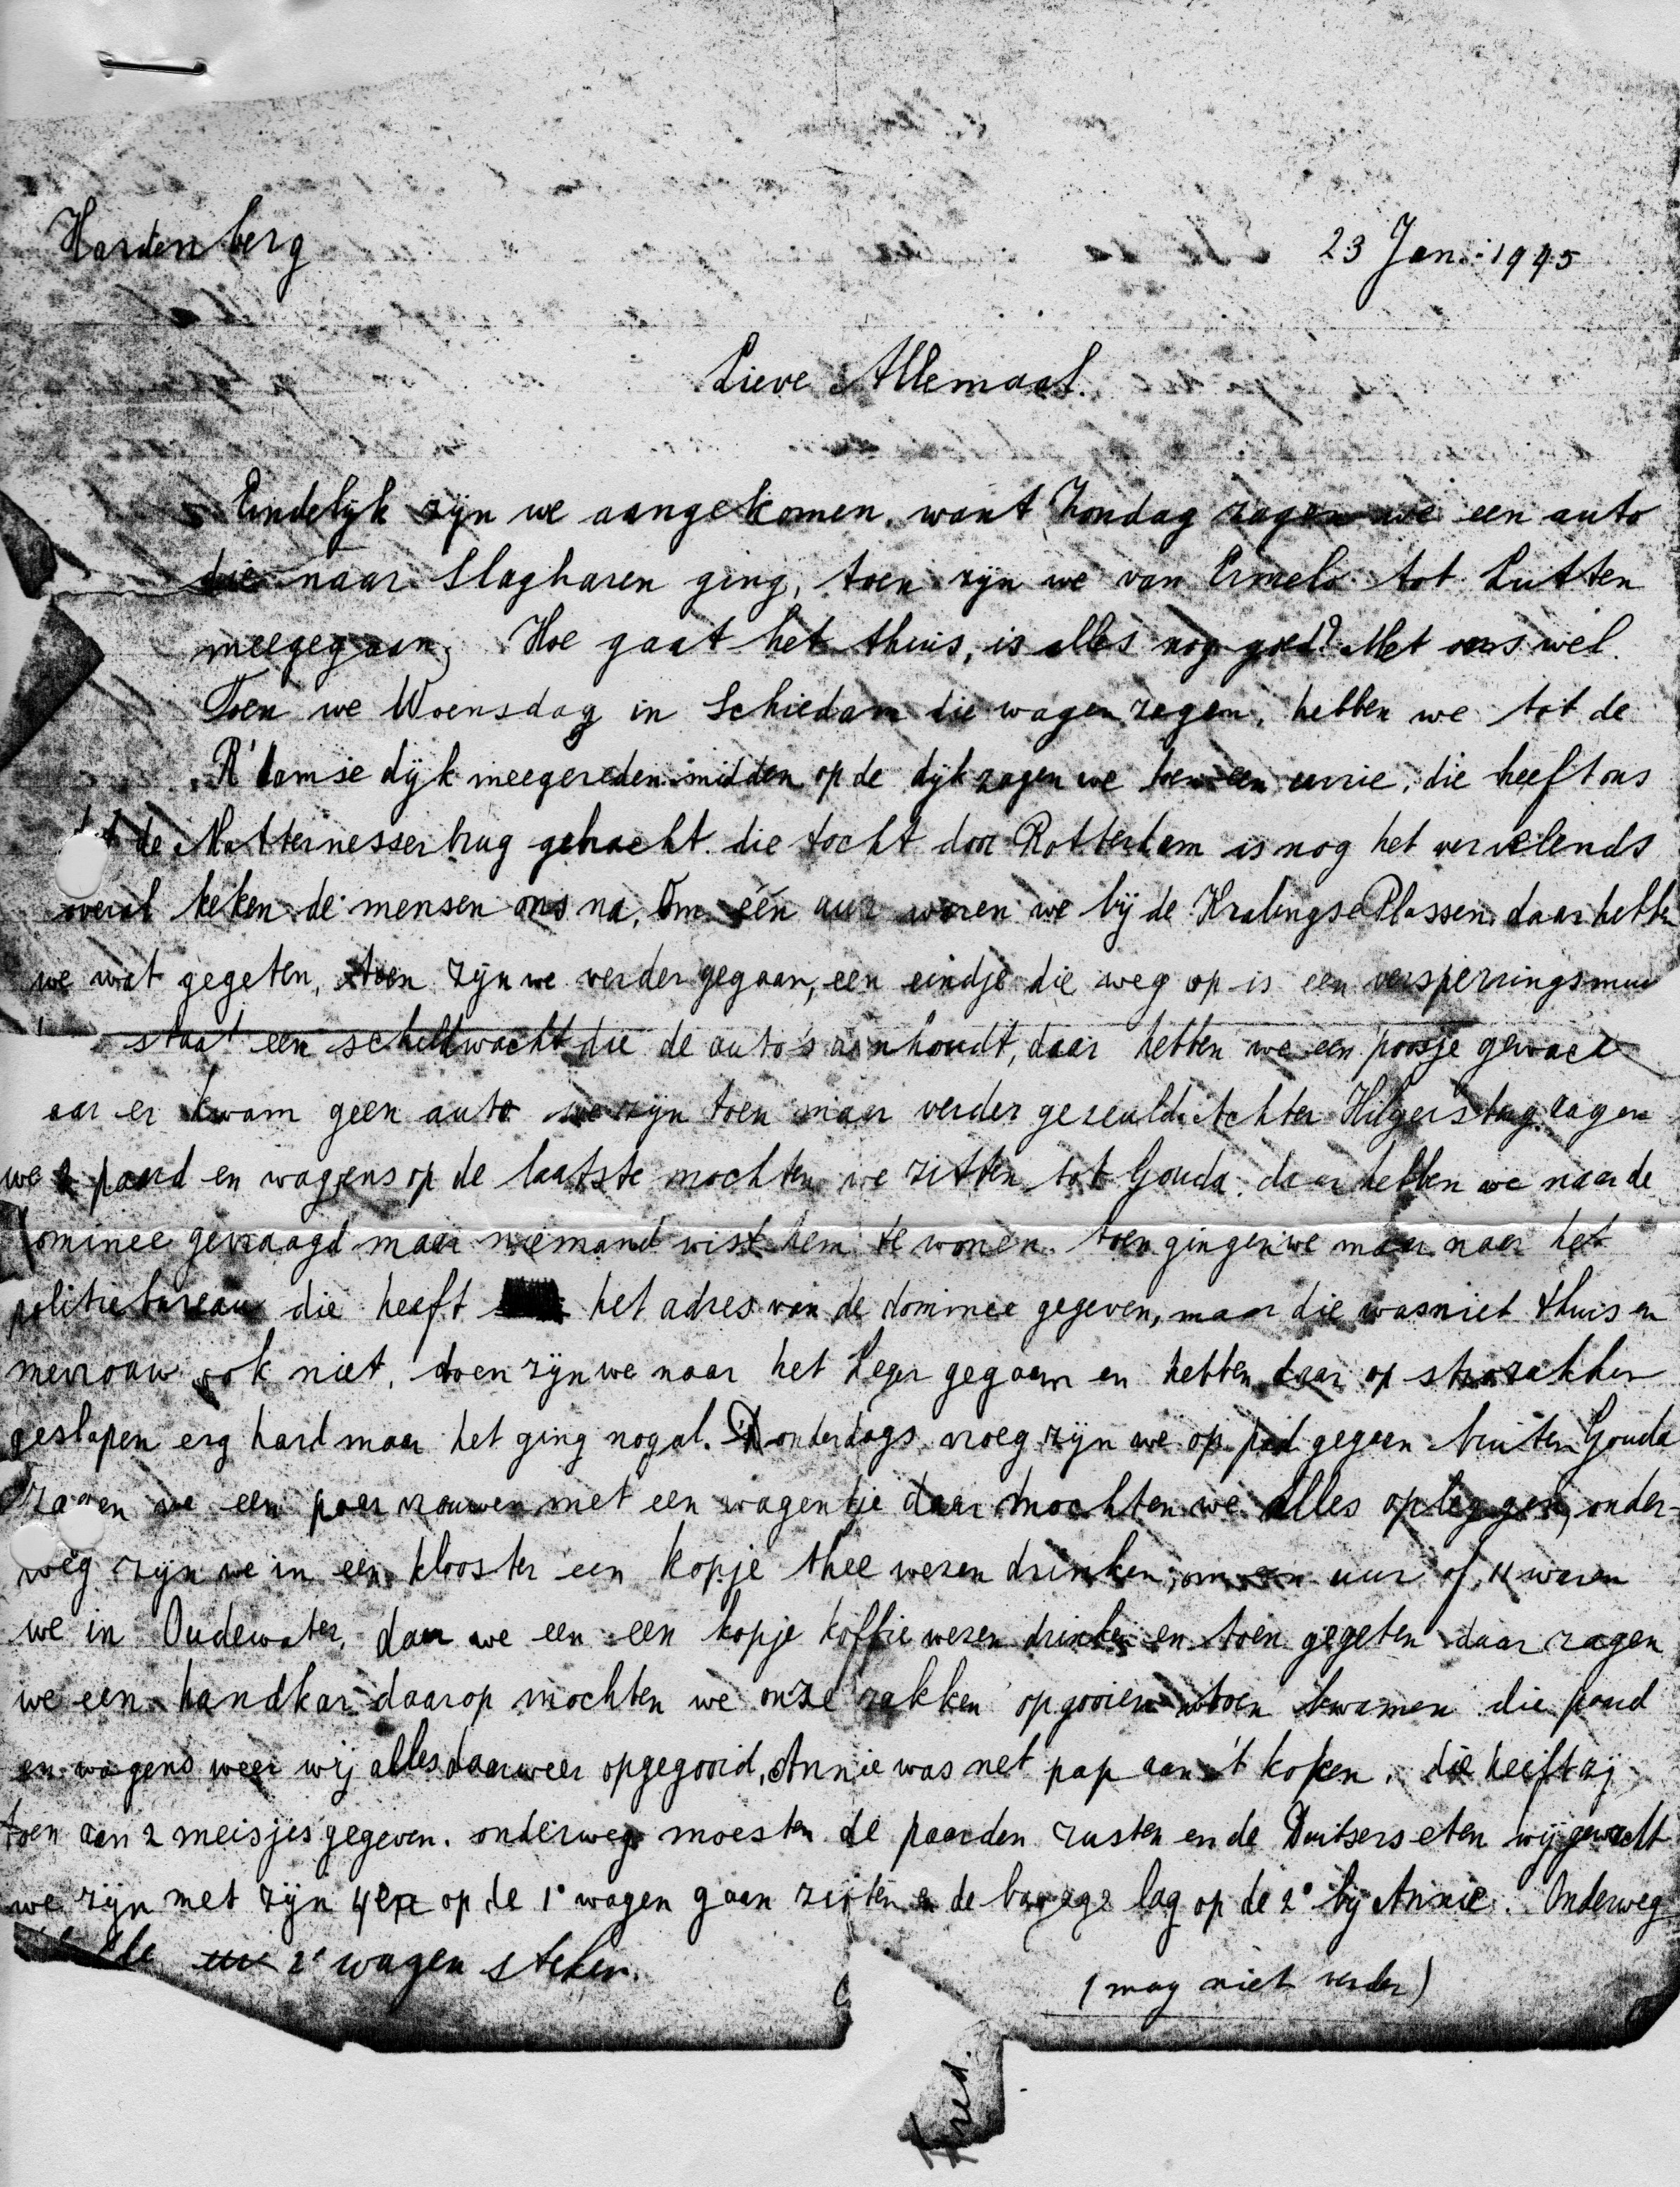 Hardenberg
23 Jan. 1945
Lieve Allemaal.
Eindelijk zijn we aangekomen, want Zondag zagen we een auto
die naar Slagharen ging, toen zijn we van Ermelo tot Lutten
meegegaan, Hoe gaat het thuis, is alles nog goed? Met ons wel.
Toen we Woensdag in Schiedam die wagen zagen, hebben we tot de
R'damse dijk meegereden midden op de dijk zagen we toen een die heeft ons
de Matternesserbrug gebracht. die tocht door Rotterdam is nog het vervelends
overal keken de mensen ons na, Om één uur waren we bij de Kralingse Plassen, daar hebben
we wat gegeten, toen zijn we verder gegaan, een eindje die weg op is een versperringsmuur
staat een schildwacht die de auto's aanhoudt, daar hebben we een poosje gewacht
aar er kwam geen auto we zijn toen maar verder gezeuld. Achter Hilgersberg zagen
we 2 paard en wagens op de laatste mochten we zitten tot Gouda. daar hebben we naar de
ominee gevraagd maar niemand wist hem te wonen. toen gingen we maar naar het
politiebureau die heeft het adres van de dominee gegeven, maar die was niet thuis en
mevrouw ook niet, toen zijn we naar het Leger gegaan en hebben daar op strozakken
geslapen erg hard maar het ging nogal. Donderdags vroeg zijn we op pad gegaan buiten Gouda
zagen we een paar vrouwen met een wagentje daar mochten we alles opleggen, onder-
weg zijn we in een klooster een kopje thee wezen drinken, om een uur of 11 waren
we in Oudewater, daar we een een kopje koffie wezen drinken en toen gegeten daar zagen
we een handkar daarop mochten we onze zakken opgooien toen kwamen die paard
en wagens weer wij alles daar weer opgegooid, Annie was net pap aan 't koken, die heeft zij
toen aan 2 meisjes gegeven. onderweg moesten de paarden rusten en de Duitsers eten wij gewacht
we zijn met zijn 4en op de 1e wagen gaan zitten en de bagage lag op de 2e bij Annie. Onderweg
de 2e wagen steken.
(mag niet verder)
Fred.